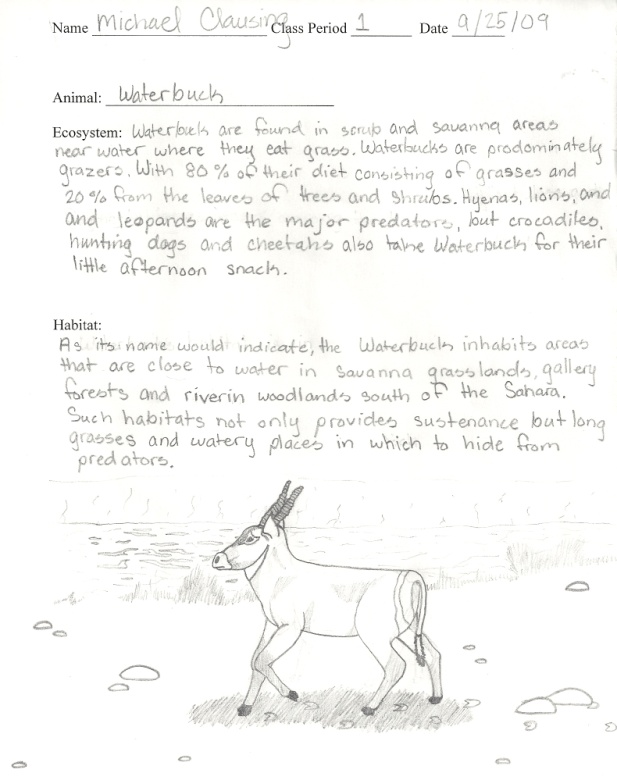 Name Michael Clausing Class Period 1 Date 9/25/09
Animal: Waterbuck
Ecosystem: Waterbuck are found in scrub and savanna areas
near water where they eat grass. Waterbucks are predominately
grazers. With 80% of their diet consisting of grasses and
20% from the leaves of trees and shrubs. Hyenas, lions, and
and leopards are the major predators, but crocadiles,
hunting dogs and cheetahs also take Waterbuck for their
little afternoon snack.
Habitat:
As its name would indicate, the Waterbuck inhabits areas
that are close to water in savanna grasslands, gallery
forests and riverin woodlands south of the Sahara.
Such habitats not only provides sustenance but long
grasses and watery places in which to hide from
predators.